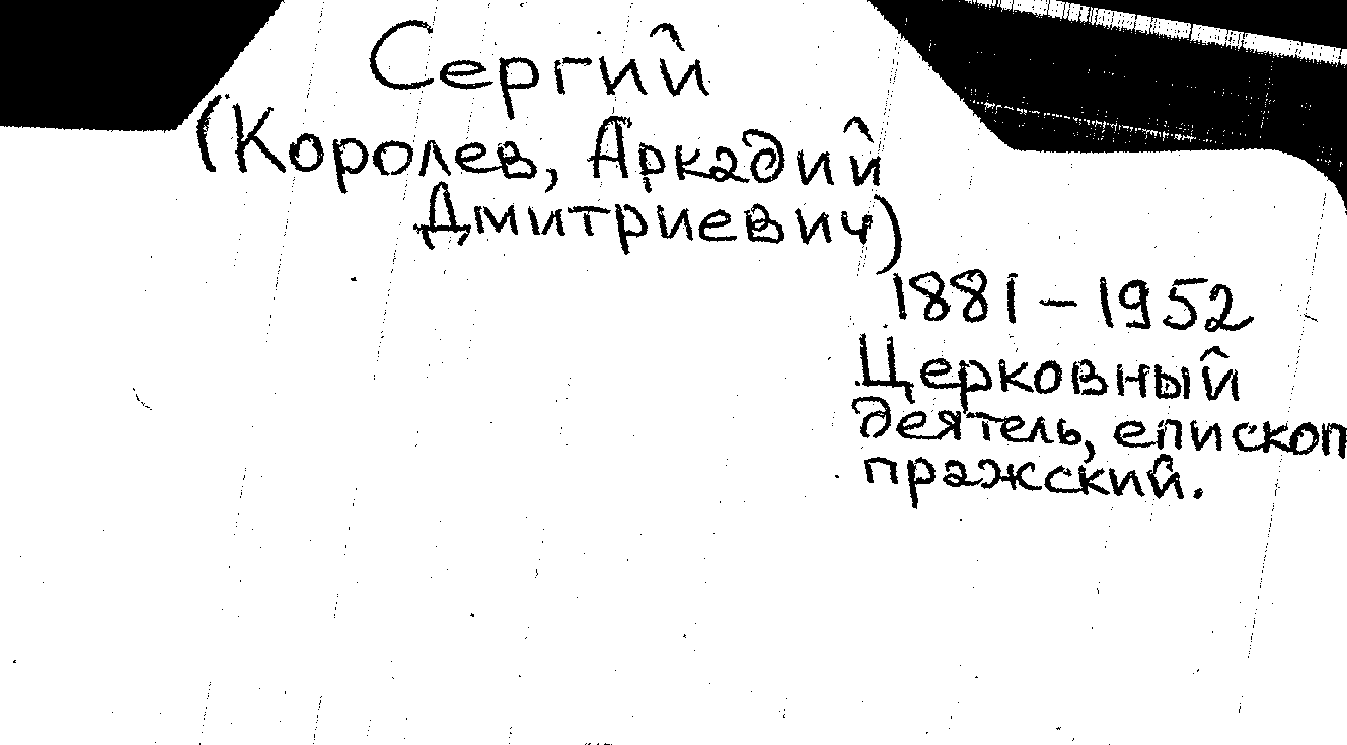 Сергий
(Королев, Аркадий
Дмитриевич)
1881 – 1952
Церковный
деятель, епископ
пражский.